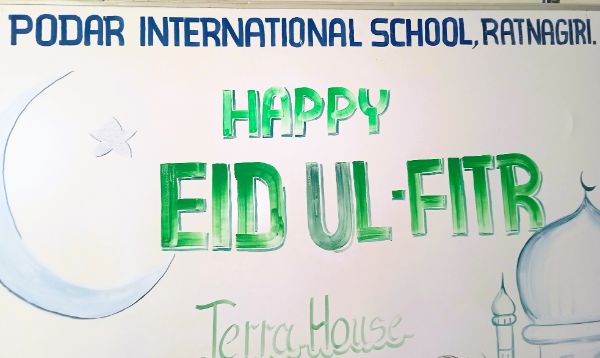 PODAR INTERNATIONAL SCHOOL, RATNAGIRI.
HAPPY
EID UL-FITR
Terra House